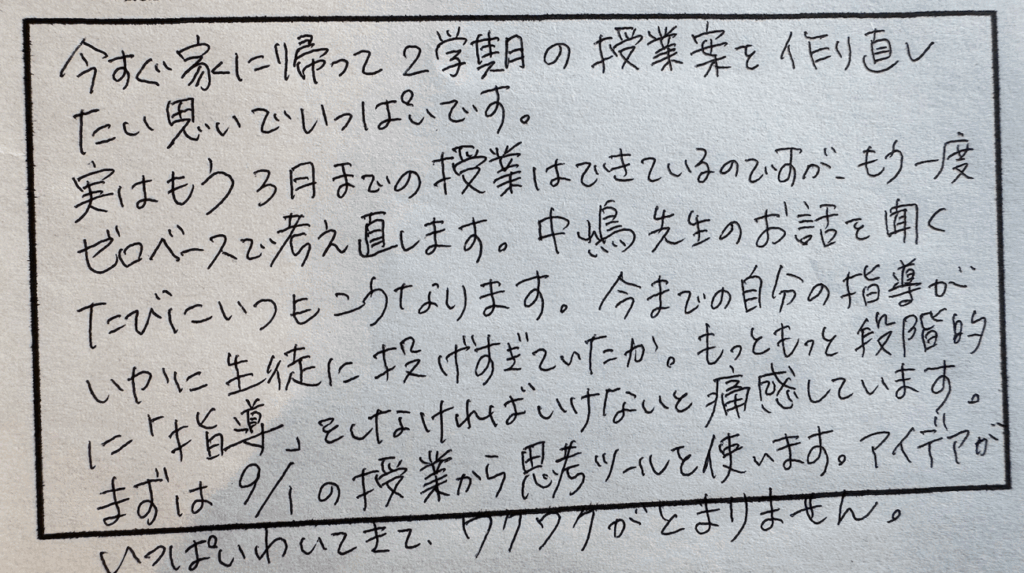 今すぐ家に帰って2学期の授業案を作り直し
たい思いでいっぱいです。
実はもう3月までの授業はできているのですが、もう一度
ゼロベースで考え直します。中嶋先生のお話を聞く
たびにいつもこうなります。今までの自分の指導が
いかに生徒に投げすぎていたか。もっともっと段階的
に「指導」をしなければいけないと痛感しています。
まずは9/1の授業から思考ツールを使います。アイデアが
いっぱいわいてきて、ワクワクがとまりません。